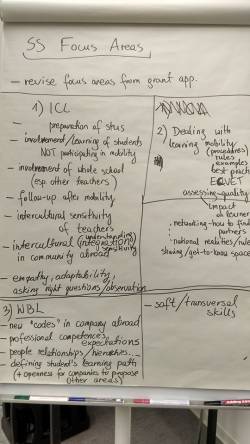 SS Focus Areas
– revise focus areas from grant app.
1) ICL
– preparation of stus
– involvement/learning of students
NOT participating in mobility
– involvement of whole school
(esp other teachers)
– follow-up after mobility
– intercultural sensitivity
of teachers
understanding
– intercultural (integration)
sensitivity
in community abroad
– empathy, adaptability,
asking right questions/observation
2) Dealing with
learning mobility
(procedures)
rules
examples
best pract
ECVET
assessing quality
impact
on learner
: networking – how to find
partners
: national realities/rules
sharing/get-to-know space
3) WBL
– new "codes" in company abroad
– professional competences,
expectations
– people relationships/hierarchies...
– defining student's learning path
(+ openness for companies to propose
other areas)
– soft/transversal
skills